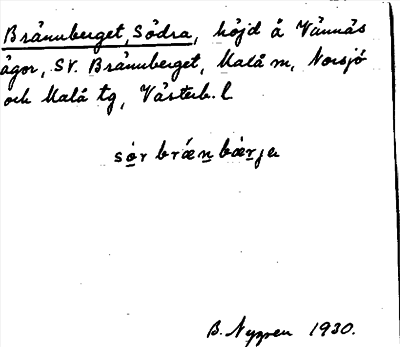 Brännberget, Södra, höjd å Vännäs
ägor, SV. Brännberget, Malå m, Norsjö
och Malå tg, Västerb. l
sör brǽn bærje
B. Nygren 1930.